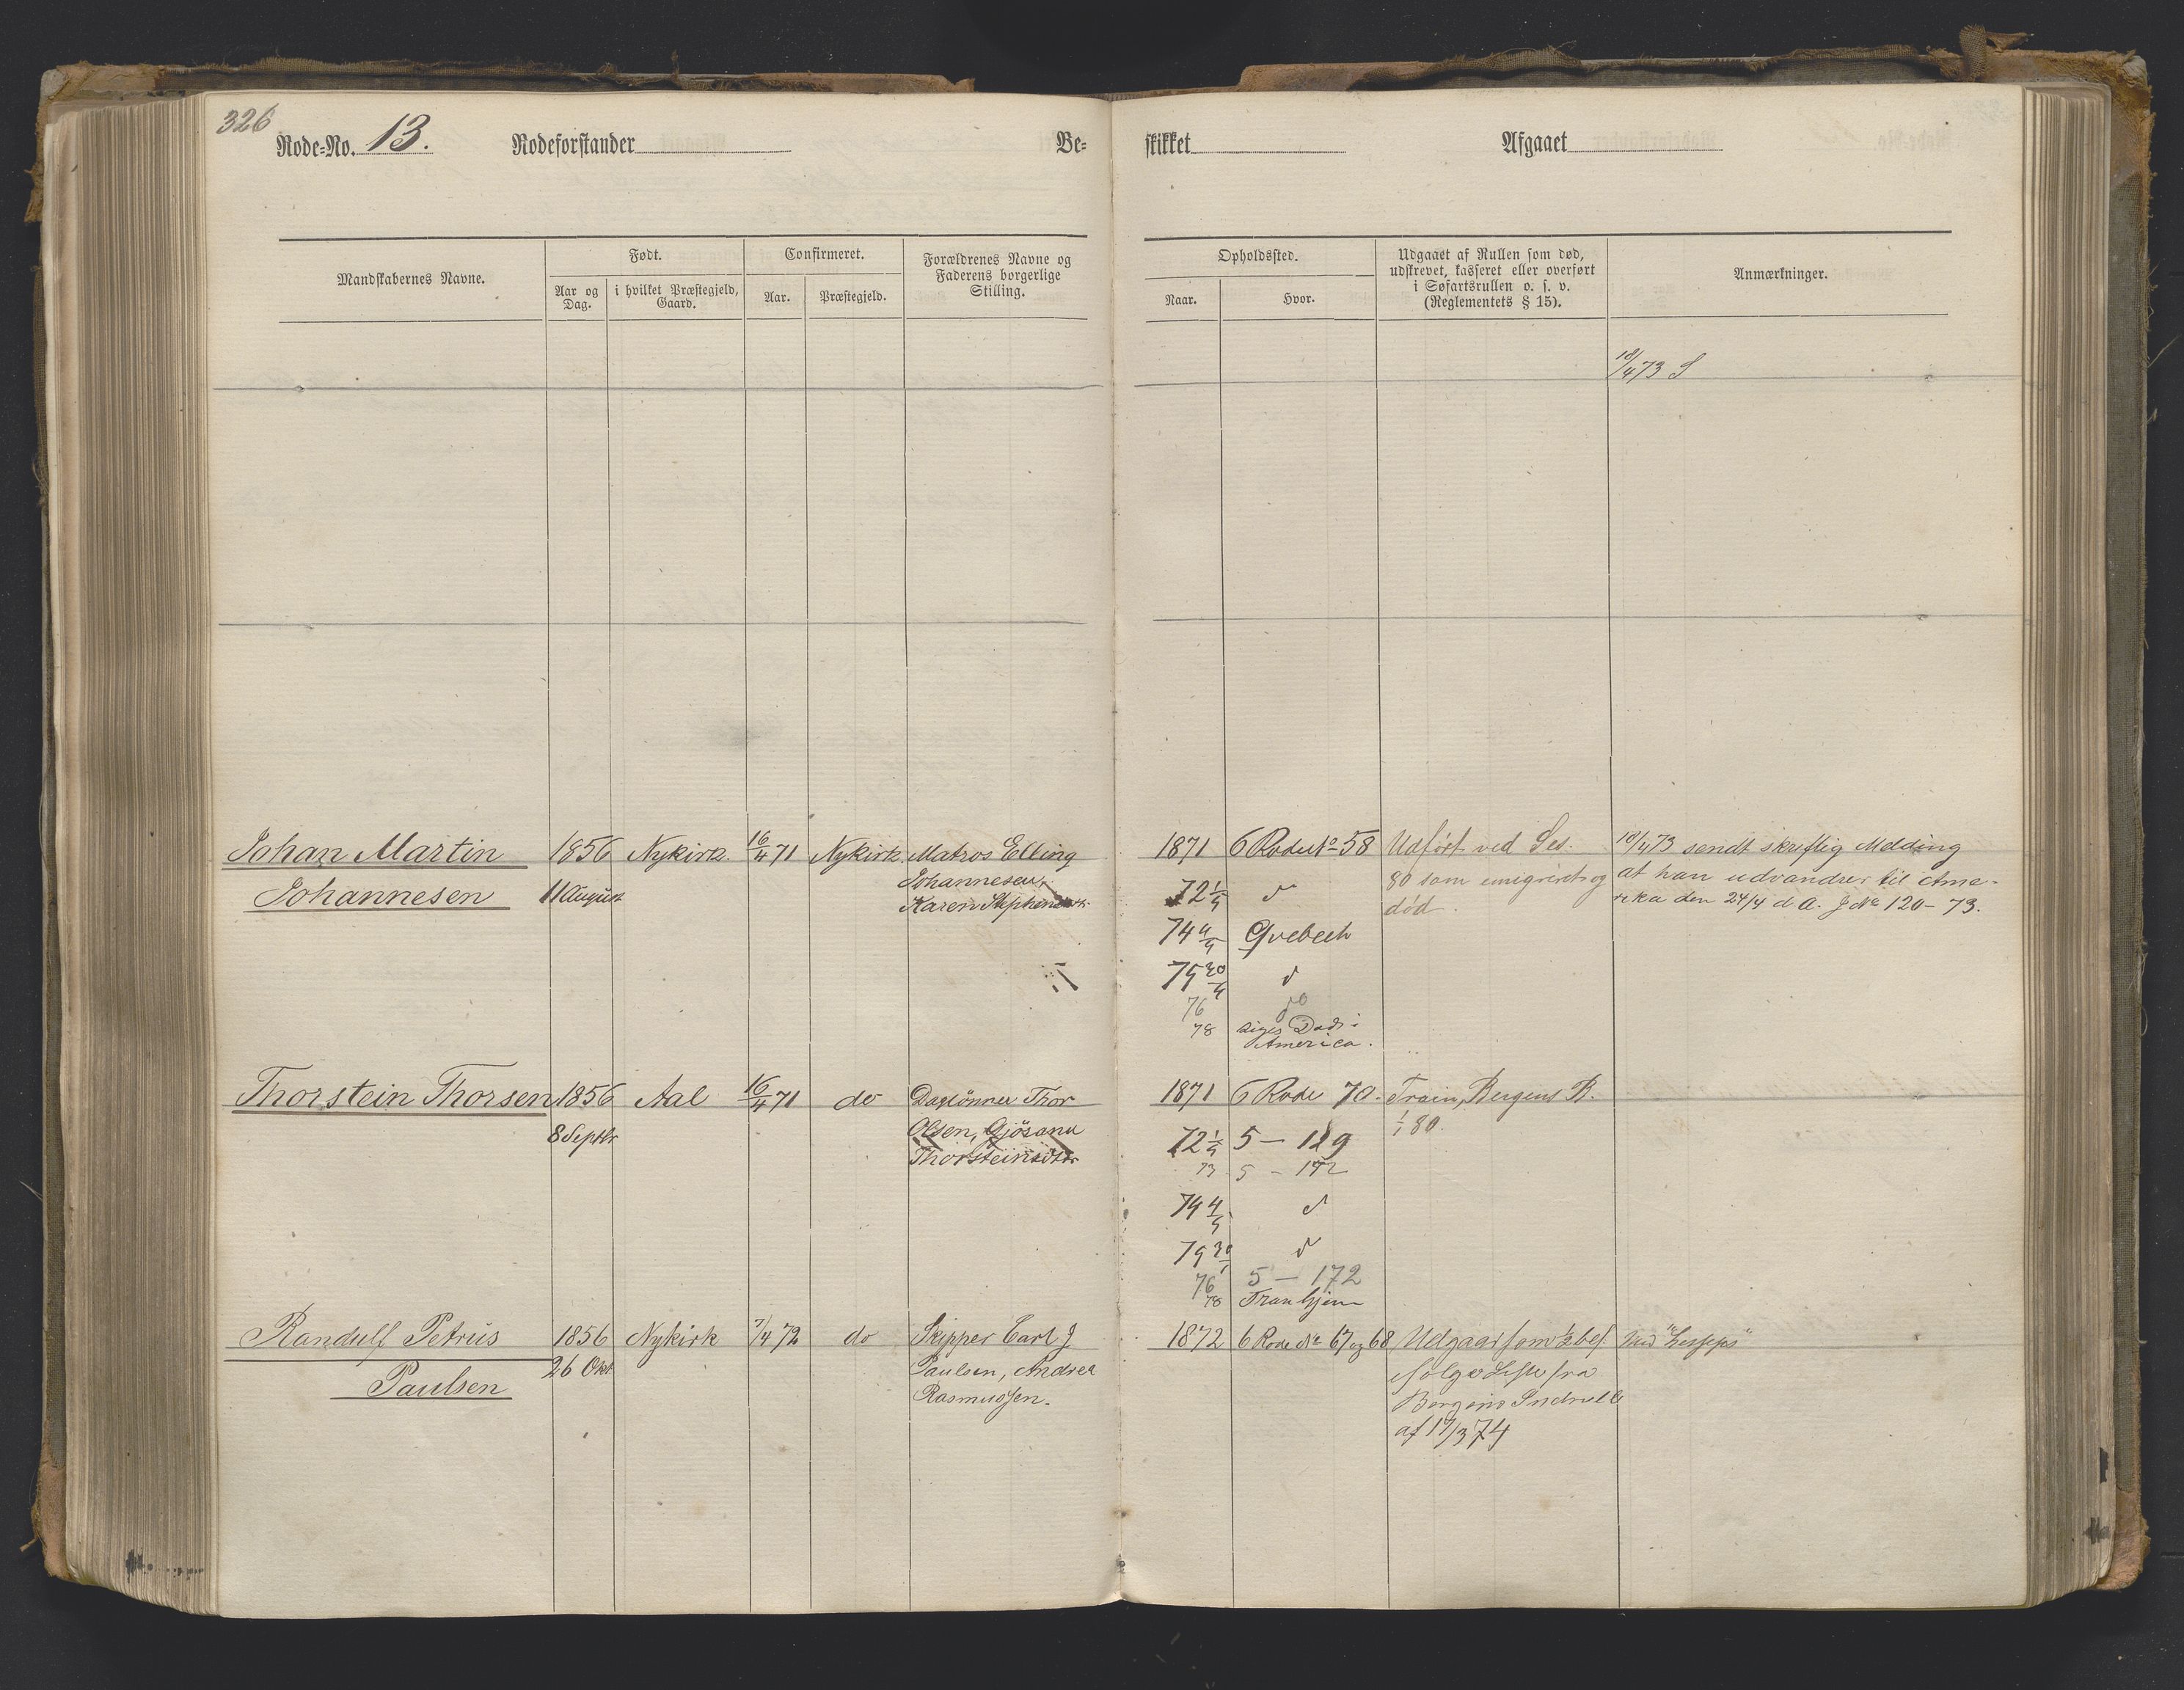 326
Rode=No. 13. Rodeforstander Be=
skikket Afgaaet
Mandskabernes Navne.
Født.
Aar og Dag.
i hvilket Præstegjeld, Gaard.
Confirmeret.
Aar.
Præstegjeld.
Forældrenes Navne og
Faderens borgerlige
Stilling.
Opholdssted.
Naar.
Hvor.
Udgaaet af Rullen som død,
udskrevet, kasseret eller overført
i Søfartsrullen o. s. v.
(Reglementets § 15).
Anmærkninger.
18/4 73 S
Johan Martin 1856 Nykirk. 16/4 71 Nykirk Matros Elling
Johannesen 11 August Johannesen,
Karen
1871 6 Rode No 58 Udført ved Ses. 18/4 73 sendt skriftlig Melding
80 som emigreret og at han udvandrer til Ame-
død. rika den 24/4 d A. J No 120-73.
72
74 Qvebech
75 30/4
76 do
78 siges Død i
America.
Thorstein Thorsen 1856 Aal 16/4 71 do Daglönner Thor
8 Septbr Olsen,
Thorsteinsdtr
1871 6 Rode 70. Train, Bergens B.
1/1 80.
72 5 - 129
73 5 - 172
74
75
76 5 - 172
78 Trondhjem
Randulf Petrus 1856 Nykirk 7/4 72 do Skipper Carl J
Paulsen 26 Okt Paulsen, Andrea
Rasmussen.
1872 6 Rode No 67 og 68 Udgaar som 1/2 bef.
følge Liste fra
Bergens Indrulle
af 17/3 74